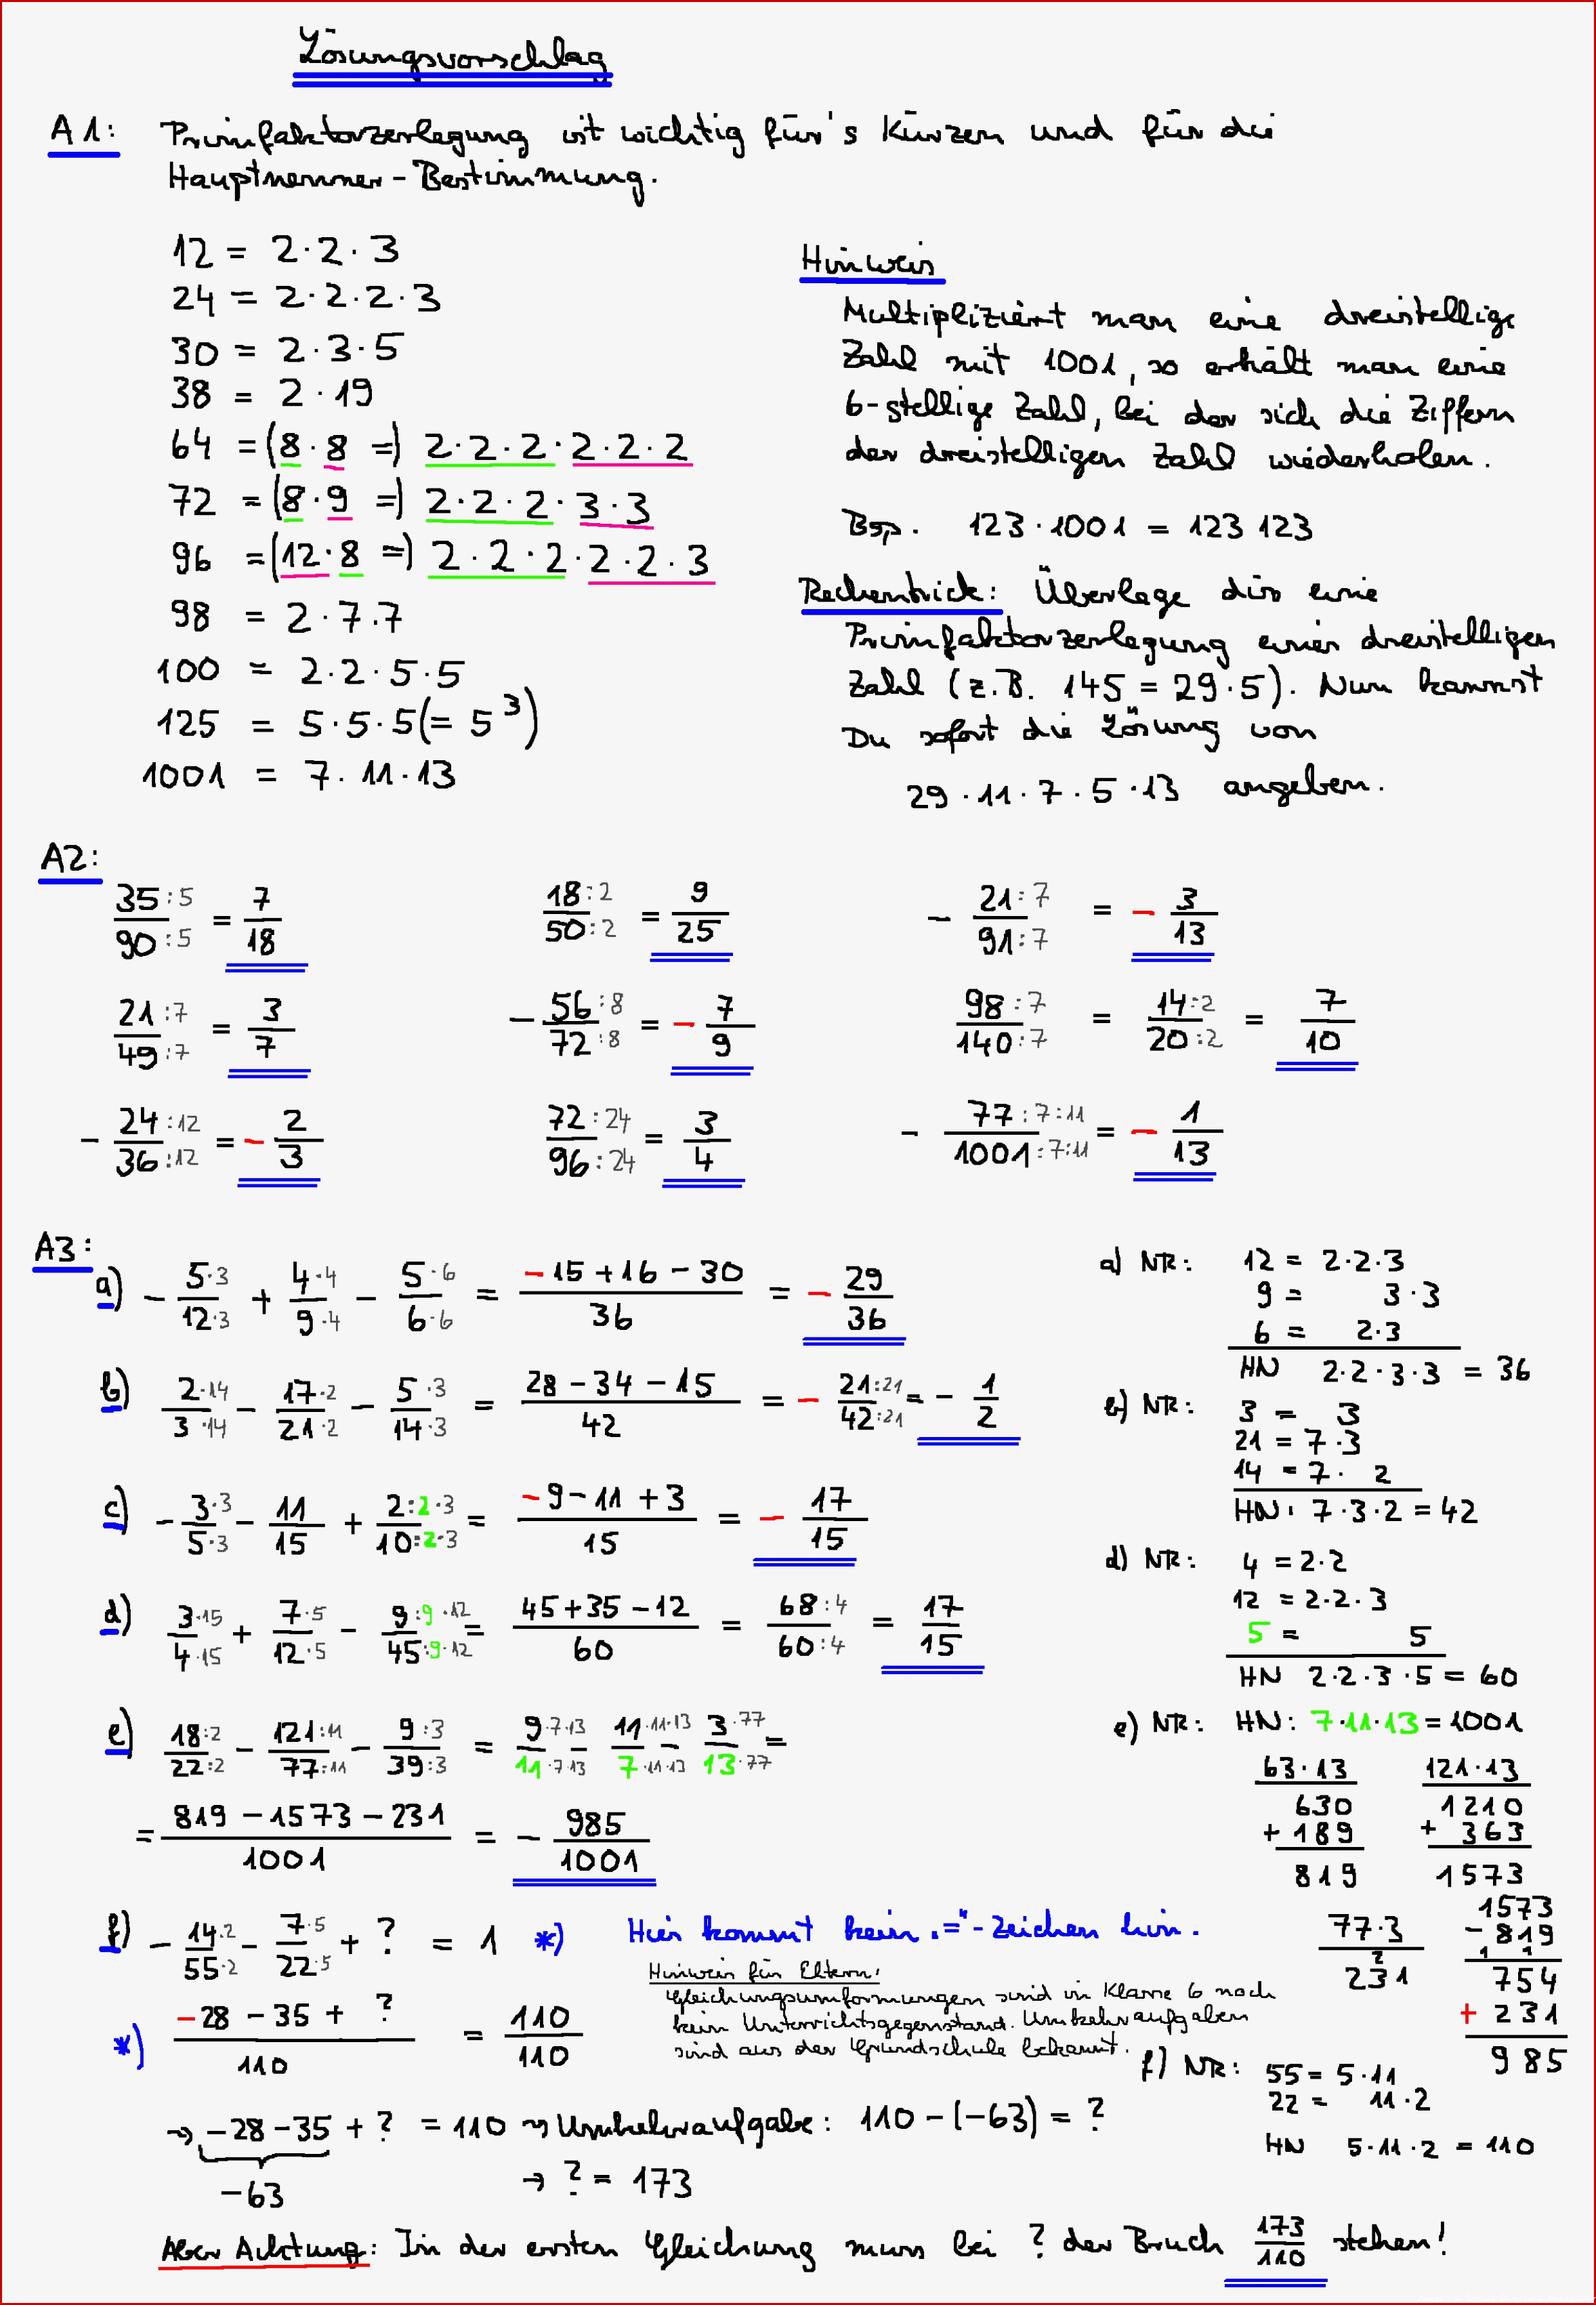 Lösungsvorschlag
A1: Primfaktorzerlegung ist wichtig für's Kürzen und für die
Hauptnenner-Bestimmung.
12 = 2·2·3
24 = 2·2·2·3
30 = 2·3·5
38 = 2·19
64 = (8·8 =) 2·2·2·2·2·2
72 = (8·9 =) 2·2·2·3·3
96 = (12·8 =) 2·2·2·2·2·3
98 = 2·7·7
100 = 2·2·5·5
125 = 5·5·5 (= 5³)
1001 = 7·11·13
Hinweis
Multipliziert man eine dreistellige
Zahl mit 1001, so erhält man eine
6-stellige Zahl, bei der sich die Ziffern
der dreistelligen Zahl wiederholen.
Bsp. 123·1001 = 123 123
Rechentrick: Überlege dir eine
Primfaktorzerlegung einer dreistelligen
Zahl (z.B. 145 = 29·5). Nun kannst
Du sofort die Lösung von
29·11·7·5·13 angeben.
A2:
35:5/90:5 = 7/18   18:2/50:2 = 9/25   - 21:7/91:7 = - 3/13
21:7/49:7 = 3/7   - 56:8/72:8 = - 7/9   98:7/140:7 = 14:2/20:2 = 7/10
- 24:12/36:12 = - 2/3   72:24/96:24 = 3/4   - 77:7:11/1001:7:11 = - 1/13
A3:
a) - 5·3/12·3 + 4·4/9·4 - 5·6/6·6 = (-15+16-30)/36 = - 29/36
b) 2·14/3·14 - 17·2/21·2 - 5·3/14·3 = (28-34-15)/42 = - 21:21/42:21 = - 1/2
c) - 3·3/5·3 - 11/15 + 2:2·3/10:2·3 = (-9-11+3)/15 = - 17/15
d) 3·15/4·15 + 7·5/12·5 - 9:9·12/45:9·12 = (45+35-12)/60 = 68:4/60:4 = 17/15
e) 18:2/22:2 - 121:11/77:11 - 9:3/39:3 = 9·7·13/11·7·13 - 11·11·13/7·11·13 - 3·77/13·77 =
= (819-1573-231)/1001 = - 985/1001
f) - 14·2/55·2 - 7·5/22·5 + ? = 1 *) Hier kommt kein „="-Zeichen hin.
Hinweis für Eltern:
Gleichungsumformungen sind in Klasse 6 noch
kein Unterrichtsgegenstand. Umkehraufgaben
sind aus der Grundschule bekannt.
*) (-28-35+ ?)/110 = 110/110
→ -28-35 + ? = 110 → Umkehraufgabe: 110-(-63) = ?
-63 → ? = 173
Aber Achtung: In der ersten Gleichung muss bei ? der Bruch 173/110 stehen!
a) NR: 12 = 2·2·3
9 = 3·3
6 = 2·3
HN 2·2·3·3 = 36
b) NR: 3 = 3
21 = 7·3
14 = 7· 2
HN: 7·3·2 = 42
d) NR: 4 = 2·2
12 = 2·2·3
5 = 5
HN 2·2·3·5 = 60
e) NR: HN: 7·11·13 = 1001
63·13
630
+ 189
819
121·13
1210
+ 363
1573
77·3
2
231
1573
- 819
1 1
754
+ 231
985
f) NR: 55 = 5·11
22 = 11·2
HN 5·11·2 = 110